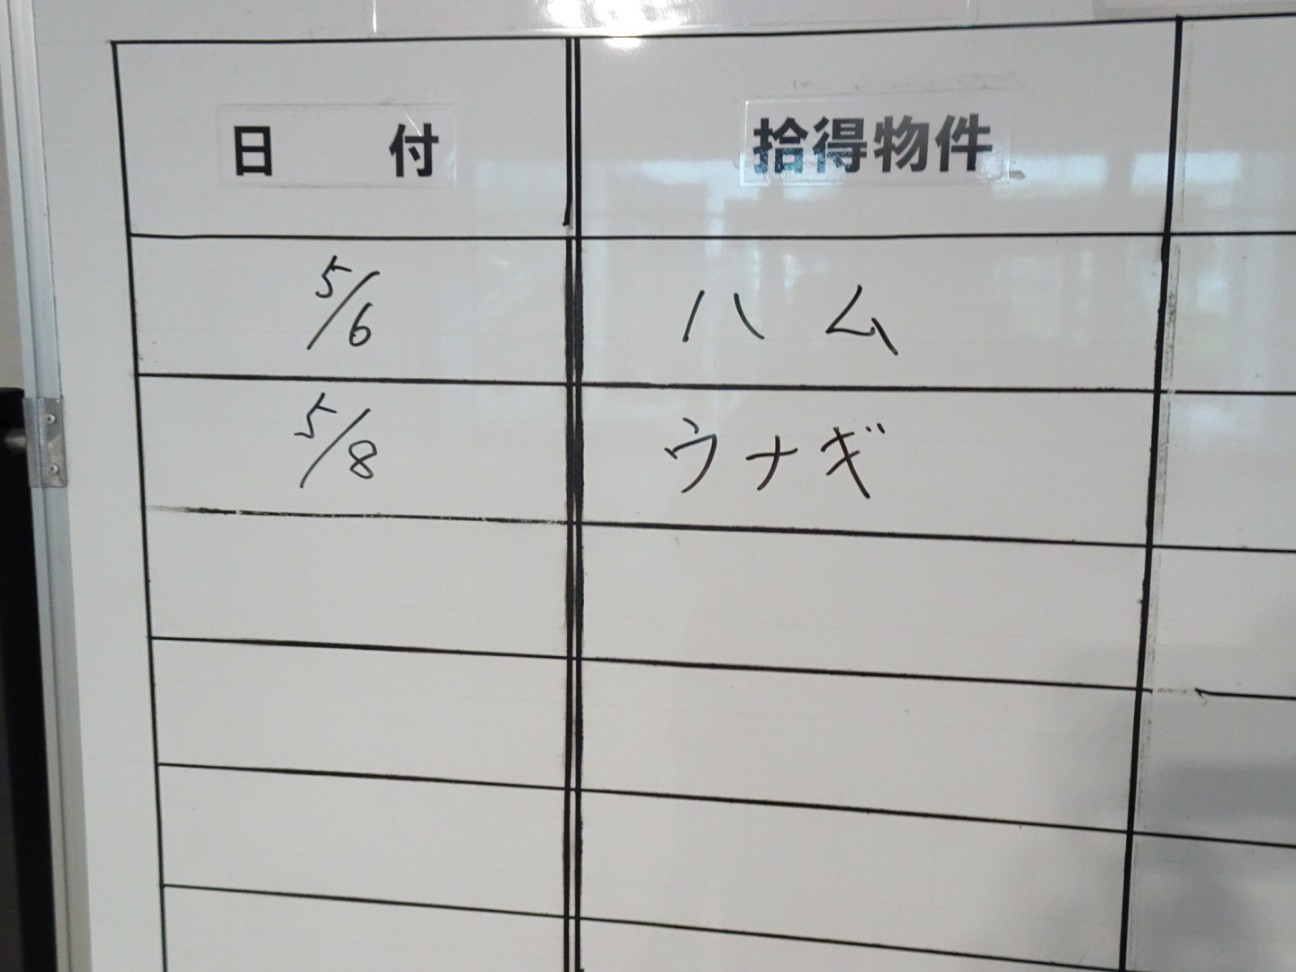 日 付 拾得物件
5/6 ハム
5/8 ウナギ